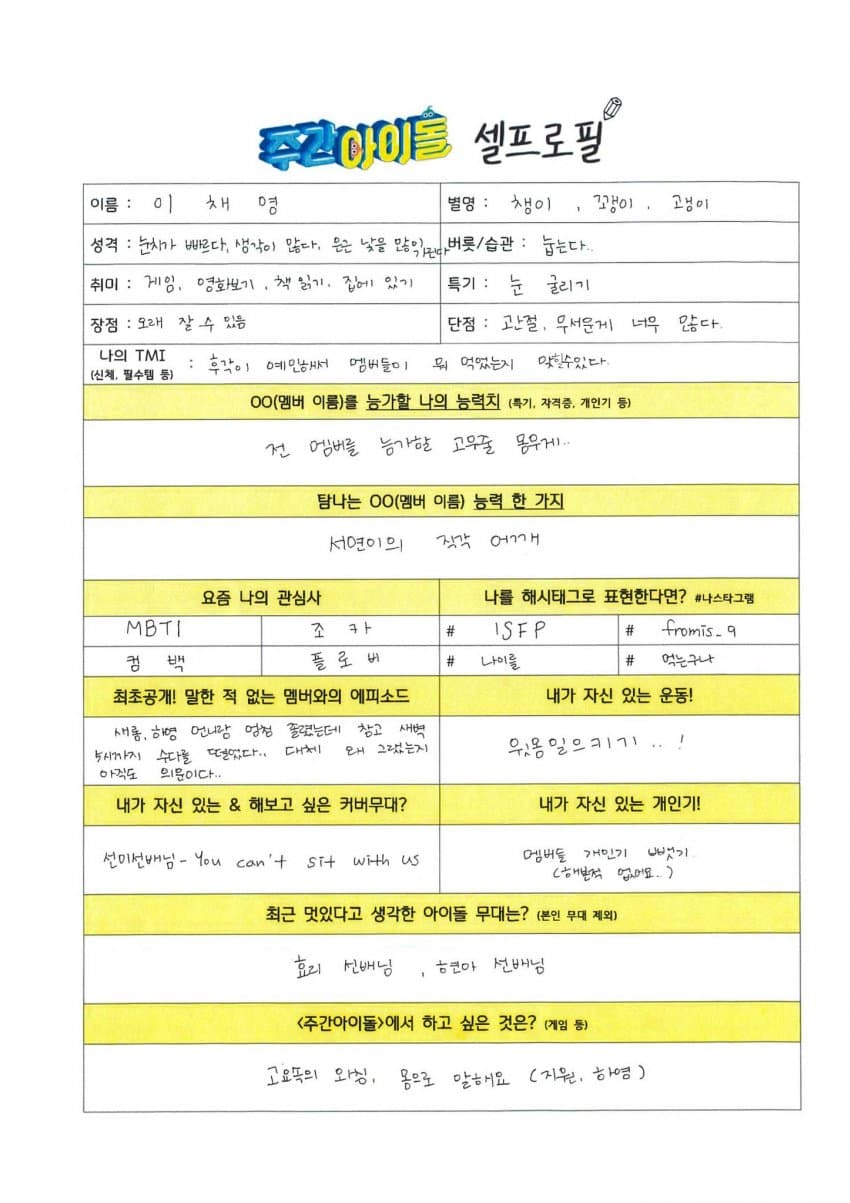 주간아이돌 셀프로필
이름 : 이 채 영 별명 : 챙이 , 꼬챙이 . 고냉이
성격 : 눈치가 빠르다, 생각이 많다. 은근 낯을 많이 가린다 버릇/습관 : 눕는다..
취미 : 게임, 영화보기 , 책 읽기. 집에 있기 특기 : 눈 굴리기
장점 : 오래 잘 수 있음 단점 : 고관절, 무서운게 너무 많다.
나의 TMI : 후각이 예민해서 멤버들이 뭐 먹었는지 맞힐수있다.
(신체, 필수템 등)
OO(멤버 이름)를 능가할 나의 능력치 (특기, 자격증, 개인기 등)
전 멤버를 능가할 고무줄 몸무게..
탐나는 OO(멤버 이름) 능력 한 가지
서연이의 직각 어깨
요즘 나의 관심사 나를 해시태그로 표현한다면? #나스타그램
MBTI 조 카 # ISFP # fromis_9
컴 백 플 로 버 # 나이를 # 먹는구나
최초공개! 말한 적 없는 멤버와의 에피소드 내가 자신 있는 운동!
새롬, 하영 언니랑 엄청 졸렸는데 참고 새벽
5시까지 수다를 떨었다.. 대체 왜 그랬는지
아직도 의문이다..
윗몸일으키기 . . !
내가 자신 있는 & 해보고 싶은 커버무대? 내가 자신 있는 개인기!
선미선배님 - You can't sit with us
멤버들 개인기 뺏기
(해본적 없어요..)
최근 멋있다고 생각한 아이돌 무대는? (본인 무대 제외)
효리 선배님 , 현아 선배님
<주간아이돌>에서 하고 싶은 것은? (게임 등)
고요속의 외침, 몸으로 말해요 (지원, 하영)